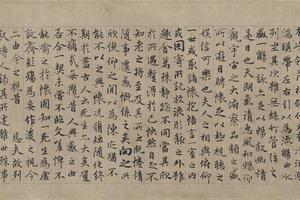 湍暎帶左右引以為流觴曲水
列坐其次雖無絲竹管弦之
盛一觴一詠亦足以暢敘幽情
是日也天朗氣清惠風和暢仰
觀宇宙之大俯察品類之盛
所以遊目騁懷足以極視聽之
娛信可樂也夫人之相與俯仰
一世或取諸懷抱悟言一室之內
或因寄所託放浪形骸之外雖
趣舍萬殊靜躁不同當其欣
於所遇蹔得於己怏然自足不
知老之將至及其所之既惓情
隨事遷感慨係之矣向之所
欣俛仰之閒以為陳迹猶不
能不以之興懷況脩短隨化終
期於盡古人云死生亦大矣豈
不痛哉每攬昔人興感之由
若合一契未嘗不臨文嗟悼不
能喻之於懷固知一死生為虛
誕齊彭殤為妄作後之視今
亦由今之視昔悲夫故列
敘時人錄其所述雖世殊事